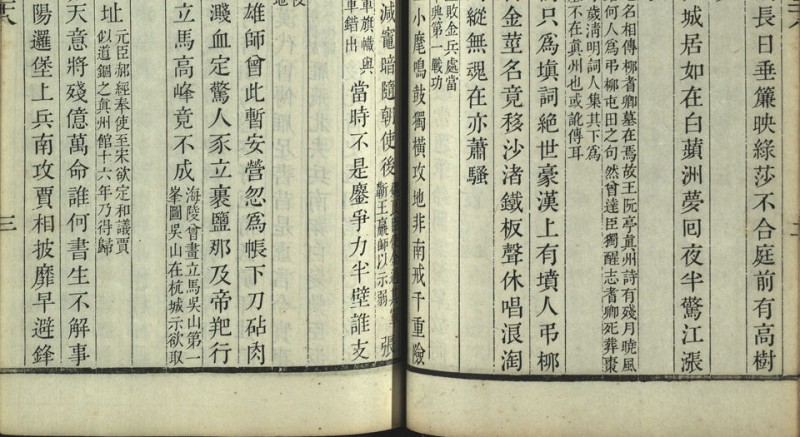 長日垂簾映綠莎不合庭前有高樹
城居如在白蘋洲夢囘夜半驚江漲
名相傳栁耆卿墓在焉故王阮亭眞州詩有殘月曉風
何人爲弔栁屯田之句然曾達臣獨醒志耆卿死葬棗
歲清明詞人集其下爲
不在眞州也或訛傳耳
只爲塡詞絕世豪漢上有墳人弔栁
金莖名竟移沙渚鐵板聲休唱浪淘
縱無魂在亦蕭騷
敗金兵處當
興弟一戰功
小麾鳴鼓獨橫攻地非南戒千重險
減竈暗隨朝使後
靳王羸師以示弱
張
軍旗幟與
軍錯出
當時不是鏖爭力半壁誰支
雄師曾此暫安營忽爲帳下刀砧肉
濺血定驚人豕立裹鹽那及帝羓行
立馬高峰竟不成
海陵曾畫立馬吳山第一
峯圖吳山在杭城示欲取
址
元臣郝經奉使至宋欲定和議賈
似道錮之眞州館十六年乃得歸
天意將殘億萬命誰何書生不解事
陽邏堡上兵南攻賈相披靡早避鋒
三